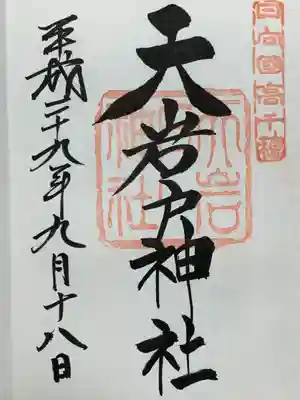 日向國高千穂
天岩戸神社
天岩戸神社
平成二十九年九月十八日